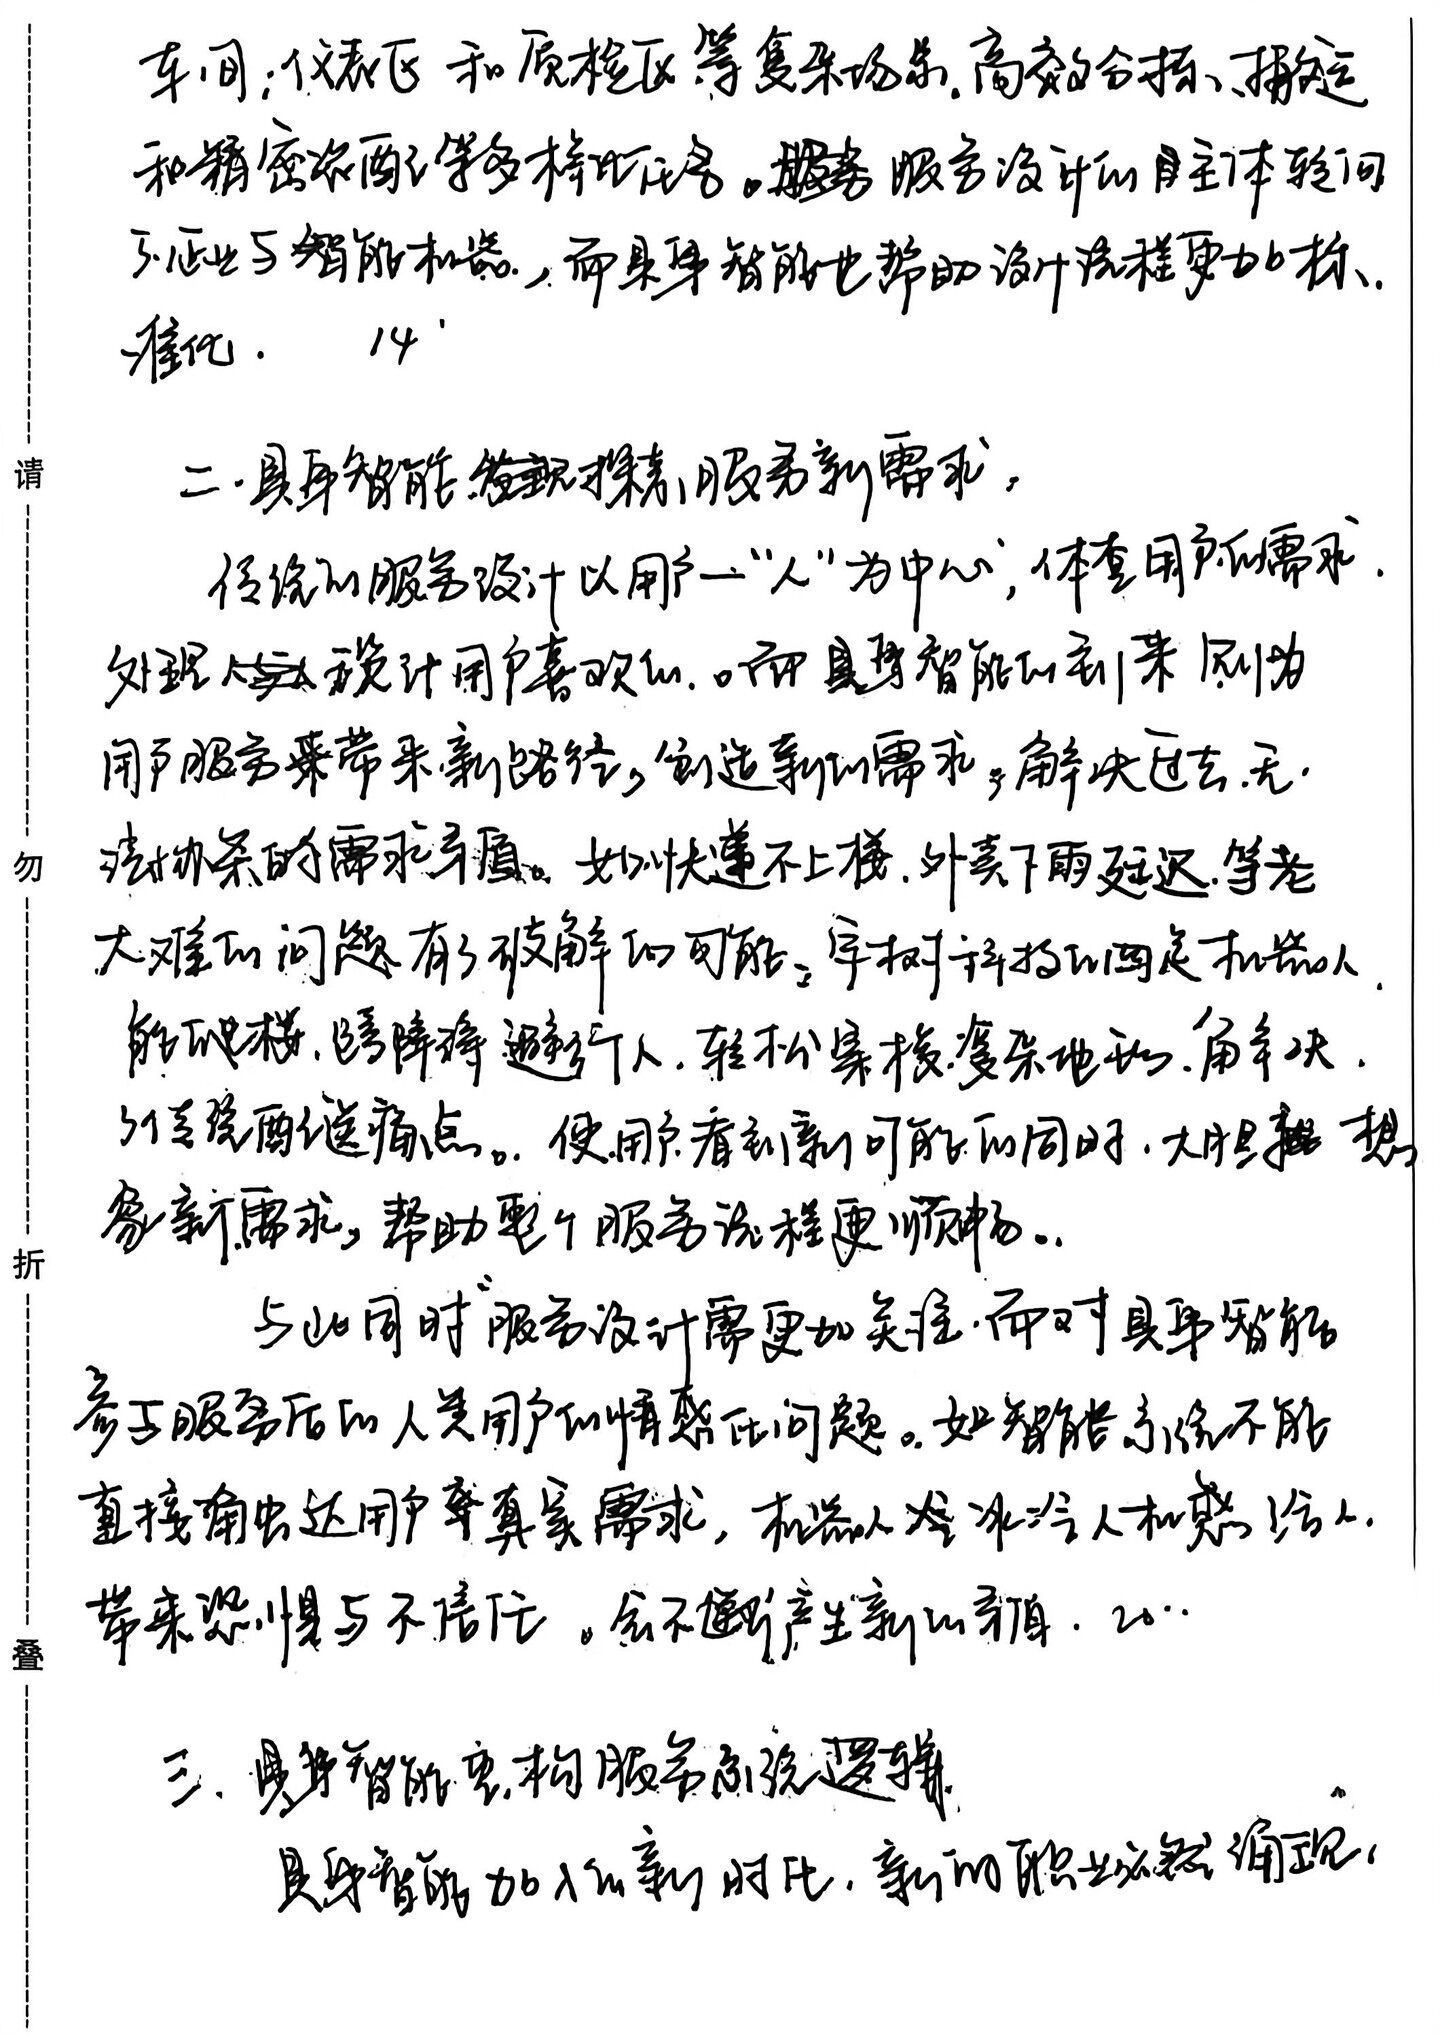 车间、仪表区和质检区等复杂场景.高效分拣、搬运
和精密装配等多样化任务。服务设计的主体转向
了企业与智能机器,而具身智能也帮助设计流程更加标
准化. 14'
二.具身智能探索服务新需求,
传统的服务设计以用户一“人”为中心,体查用户的需求.
处理设计用户喜欢的.。而具身智能的到来则为
用户服务带来新路径,创造新的需求,解决过去无
法协条的需求矛盾。如快递不上楼.外卖下雨延迟.等老
大难的问题有了破解的可能,宇树科技的四足机器人
能爬楼,跨障碍避行人.轻松穿梭复杂地形.解决
了传统配送痛点。使用户看到新可能的同时.大胆想
象新需求,帮助整个服务流程更顺畅。
与此同时服务设计需更加关注.面对具身智能
参与服务后的人类用户的情感化问题。如智能系统不能
直接触达用户真实需求,机器人冰冷人机感给人
带来恐惧与不信任。会不断产生新的矛盾.20..
三.具身智能重构服务系统逻辑.
具身智能加入的新时代,新的职业必然涌现,
请
勿
折
叠